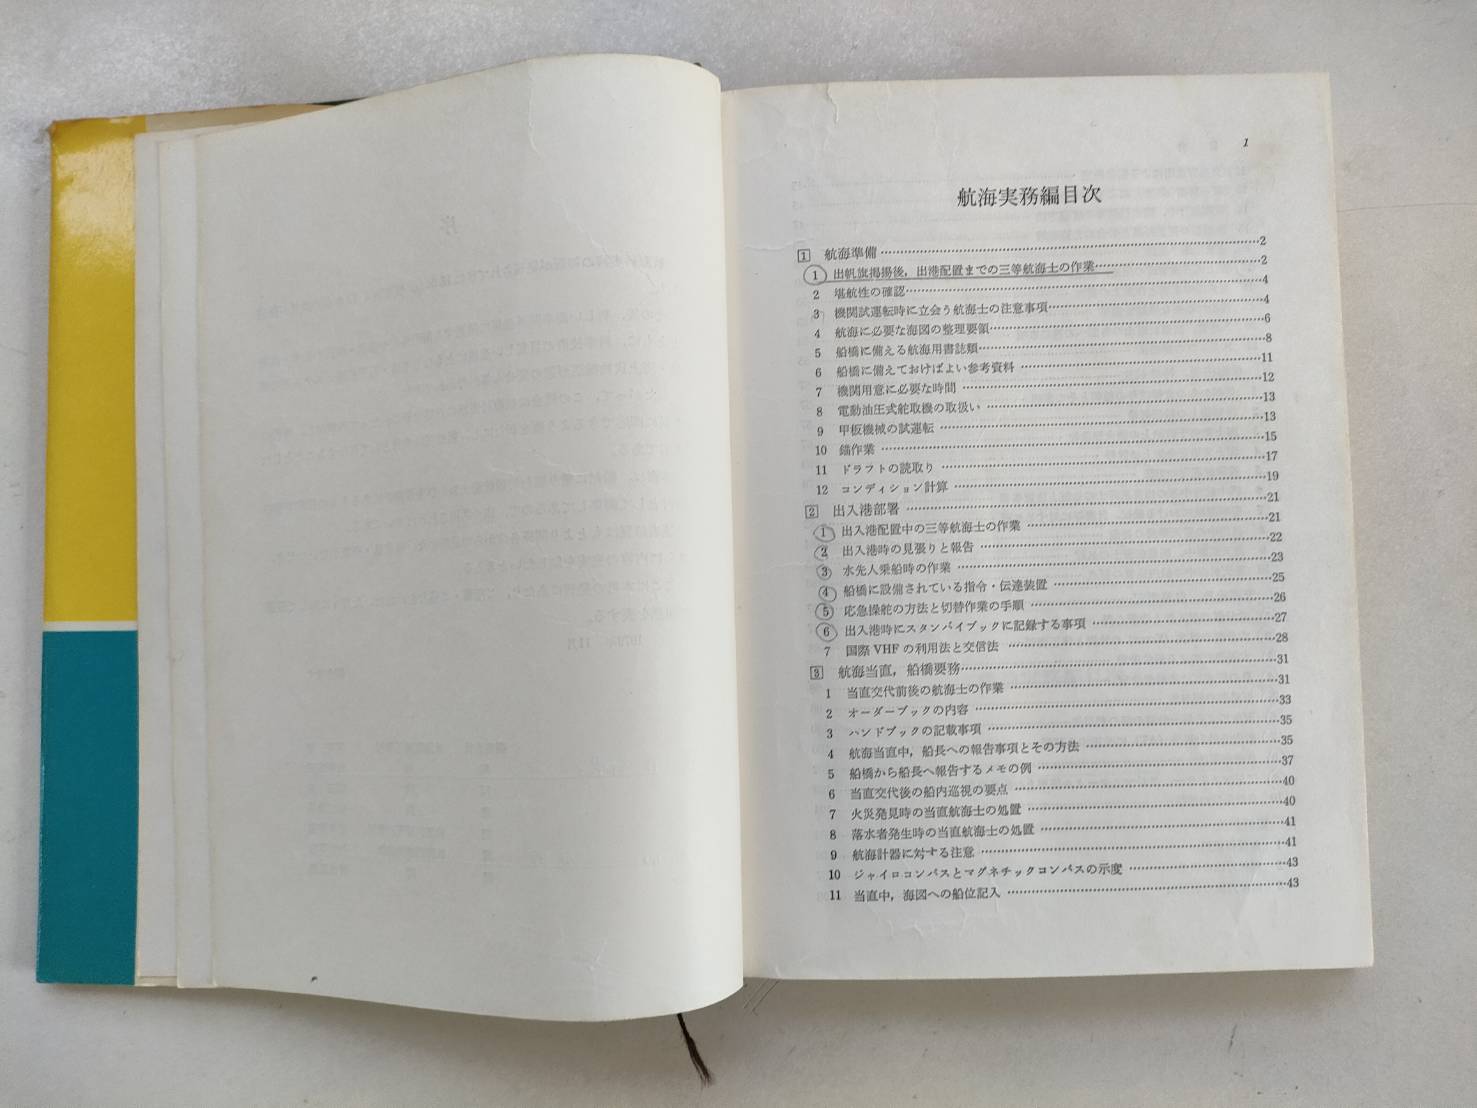 1
航海実務編目次
1 航海準備……2
1 出帆旗掲揚後,出港配置までの三等航海士の作業……2
2 堪航性の確認……4
3 機関試運転時に立会う航海士の注意事項……4
4 航海に必要な海図の整理要領……6
5 船橋に備える航海用書誌類……8
6 船橋に備えておけばよい参考資料……11
7 機関用意に必要な時間……12
8 電動油圧式舵取機の取扱い……13
9 甲板機械の試運転……13
10 錨作業……15
11 ドラフトの読取り……17
12 コンディション計算……19
2 出入港部署……21
1 出入港配置中の三等航海士の作業……21
2 出入港時の見張りと報告……22
3 水先人乗船時の作業……23
4 船橋に設備されている指令・伝達装置……25
5 応急操舵の方法と切替作業の手順……26
6 出入港時にスタンバイブックに記録する事項……27
7 国際VHFの利用法と交信法……28
3 航海当直,船橋要務……31
1 当直交代前後の航海士の作業……31
2 オーダーブックの内容……33
3 ハンドブックの記載事項……35
4 航海当直中,船長への報告事項とその方法……35
5 船橋から船長へ報告するメモの例……37
6 当直交代後の船内巡視の要点……40
7 火災発見時の当直航海士の処置……40
8 落水者発生時の当直航海士の処置……41
9 航海計器に対する注意……41
10 ジャイロコンパスとマグネチックコンパスの示度……43
11 当直中,海図への船位記入……43